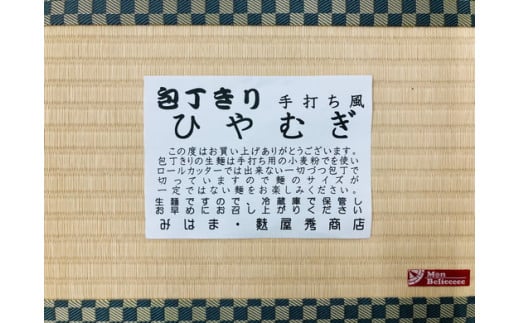 包丁きり 手打ち風
ひやむぎ
この度はお買い上げありがとうございます。
包丁きりの生麺は手打ち用の小麦粉でを使い
ロールカッターでは出来ない一切づつ包丁で
切っていますので麺のサイズが
一定ではない麺をお楽しみください。
生麺ですので、冷蔵庫で保管し
お早めにお召し上がりください
みはま・麩屋秀商店
Mon
Belieeeee